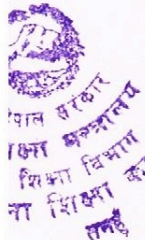 नेपाल सरकार
शिक्षा मन्त्रालय
शिक्षा विभाग
शिक्षा
तनहुँ